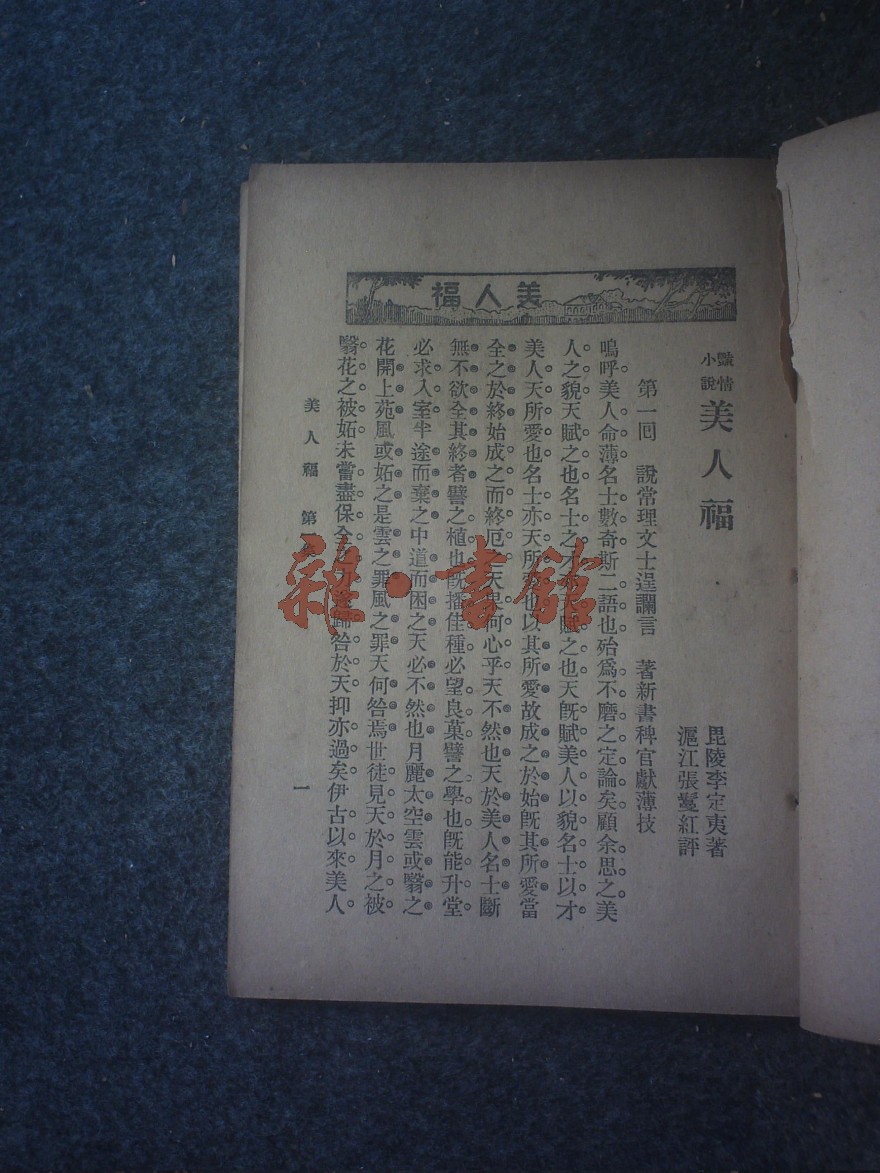 美人福
艷情小說 美人福
毘陵李定夷著
滬江張鸞紅評
第一囘 說常理文士逞讕言 著新書稗官獻薄技
嗚呼美人命薄名士數奇斯二語也殆爲不磨之定論矣顧余思之美
人之貌天賦之也名士之才天賦之也天旣賦美人以貌名士以才
美人天所愛也名士亦天所愛也以其所愛故成之於始旣其所愛當
全之於終始成之而終厄之天果何心乎天不然也天於美人名士斷
無不欲全其終者譬之植也旣播佳種必望良菓譬之學也旣能升堂
必求入室半途而棄之中道而困之天必不然也月麗太空雲或翳之
花開上苑風或妬之是雲之罪風之罪天何咎焉世徒見天於月之被
翳花之被妬未嘗盡保全之力歸咎於天抑亦過矣伊古以來美人
美人福 第
一
雜·書館